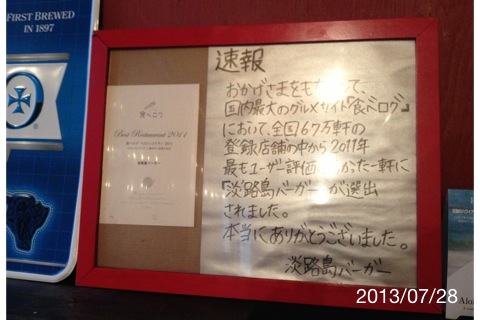 FIRST BREWED
IN 1897
R
食べログ
Best Restaurant 2011
淡路島バーガー
速報
おかげさまをもちまして、
国内最大のグルメサイト『食べログ』
において、全国67万軒の
登録店舗の中から2011年
最もユーザー評価 かった一軒に
「淡路島バーガー」が選出
されました。
本当にありがとうございました。
淡路島バーガー
Alo
2013/07/28